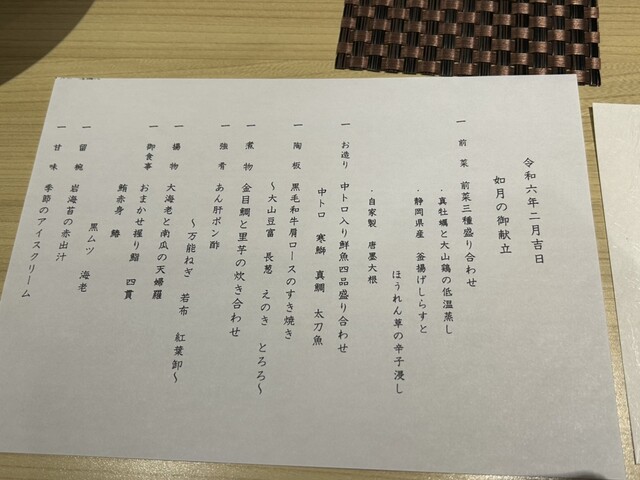 令和六年二月吉日
如月の御献立
一 前菜 前菜三種盛り合わせ
・真牡蠣と大山鶏の低温蒸し
・静岡県産 釜揚げしらすと
ほうれん草の辛子浸し
・自家製 唐墨大根
一 お造り 中トロ入り鮮魚四品盛り合わせ
中トロ 寒鰤 真鯛 太刀魚
一 陶板 黒毛和牛肩ロースのすき焼き
～大山豆富 長葱 えのき とろろ～
一 煮物 金目鯛と里芋の炊き合わせ
一 強肴 あん肝ポン酢
～万能ねぎ 若布 紅葉卸～
一 揚物 大海老と南瓜の天婦羅
一 御食事 おまかせ握り鮨 四貫
鮪赤身 鰆
黒ムツ 海老
一 留椀 岩海苔の赤出汁
一 甘味 季節のアイスクリーム